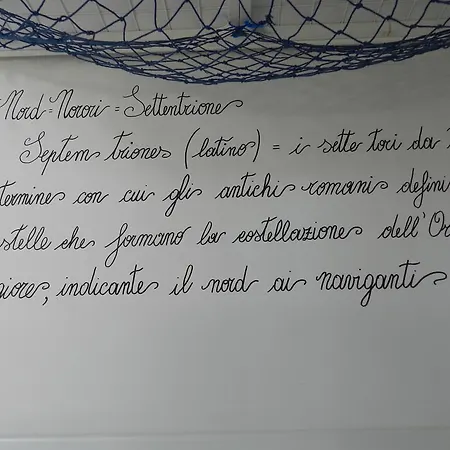 Nord=Norori=Settentrione
Septem triones (latino) = i sette tori da
termine con cui gli antichi romani defini
stelle che formano la costellazione dell'Or
giore, indicante il nord ai naviganti